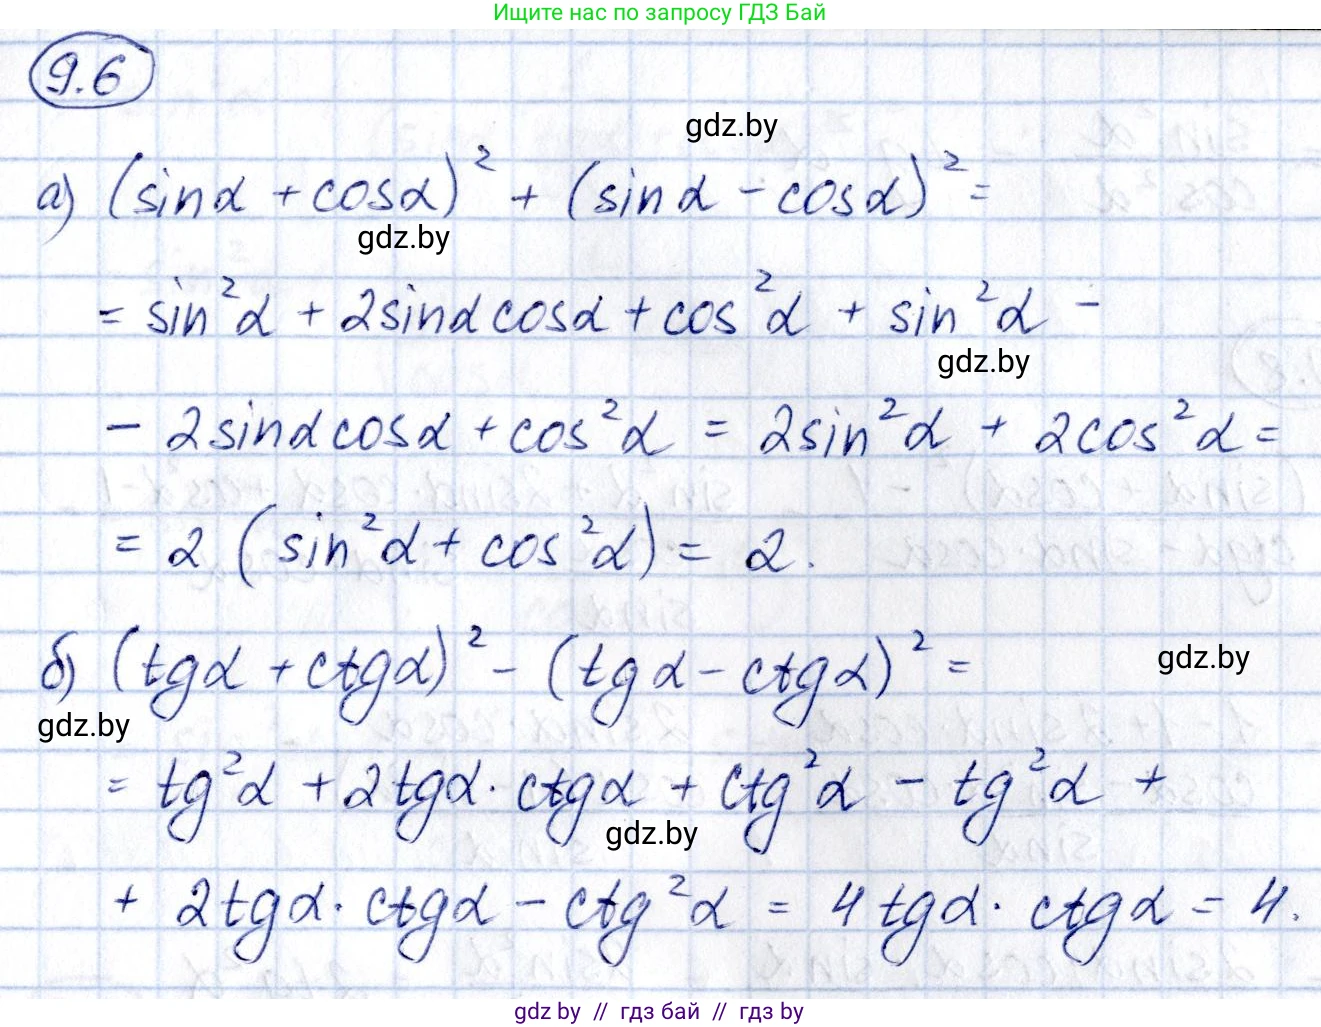 Ищите нас по запросу ГДЗ Бай
9.6
gdz.by
а) (sinα + cosα)² + (sinα - cosα)² =
gdz.by
= sin²α + 2sinα cosα + cos²α + sin²α -
gdz.by
- 2sinα cosα + cos²α = 2sin²α + 2cos²α =
= 2 (sin²α + cos²α) = 2.
б) (tgα + ctgα)² - (tgα - ctgα)² =
gdz.by
gdz.by
= tg²α + 2tgα · ctgα + ctg²α - tg²α +
gdz.by
+ 2tgα · ctgα - ctg²α = 4tgα · ctgα = 4.
gdz by // гдз бай // гдз.by